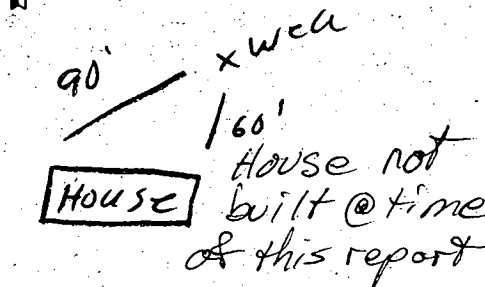 90' x Well
60'
House not
House built @ time
of this report